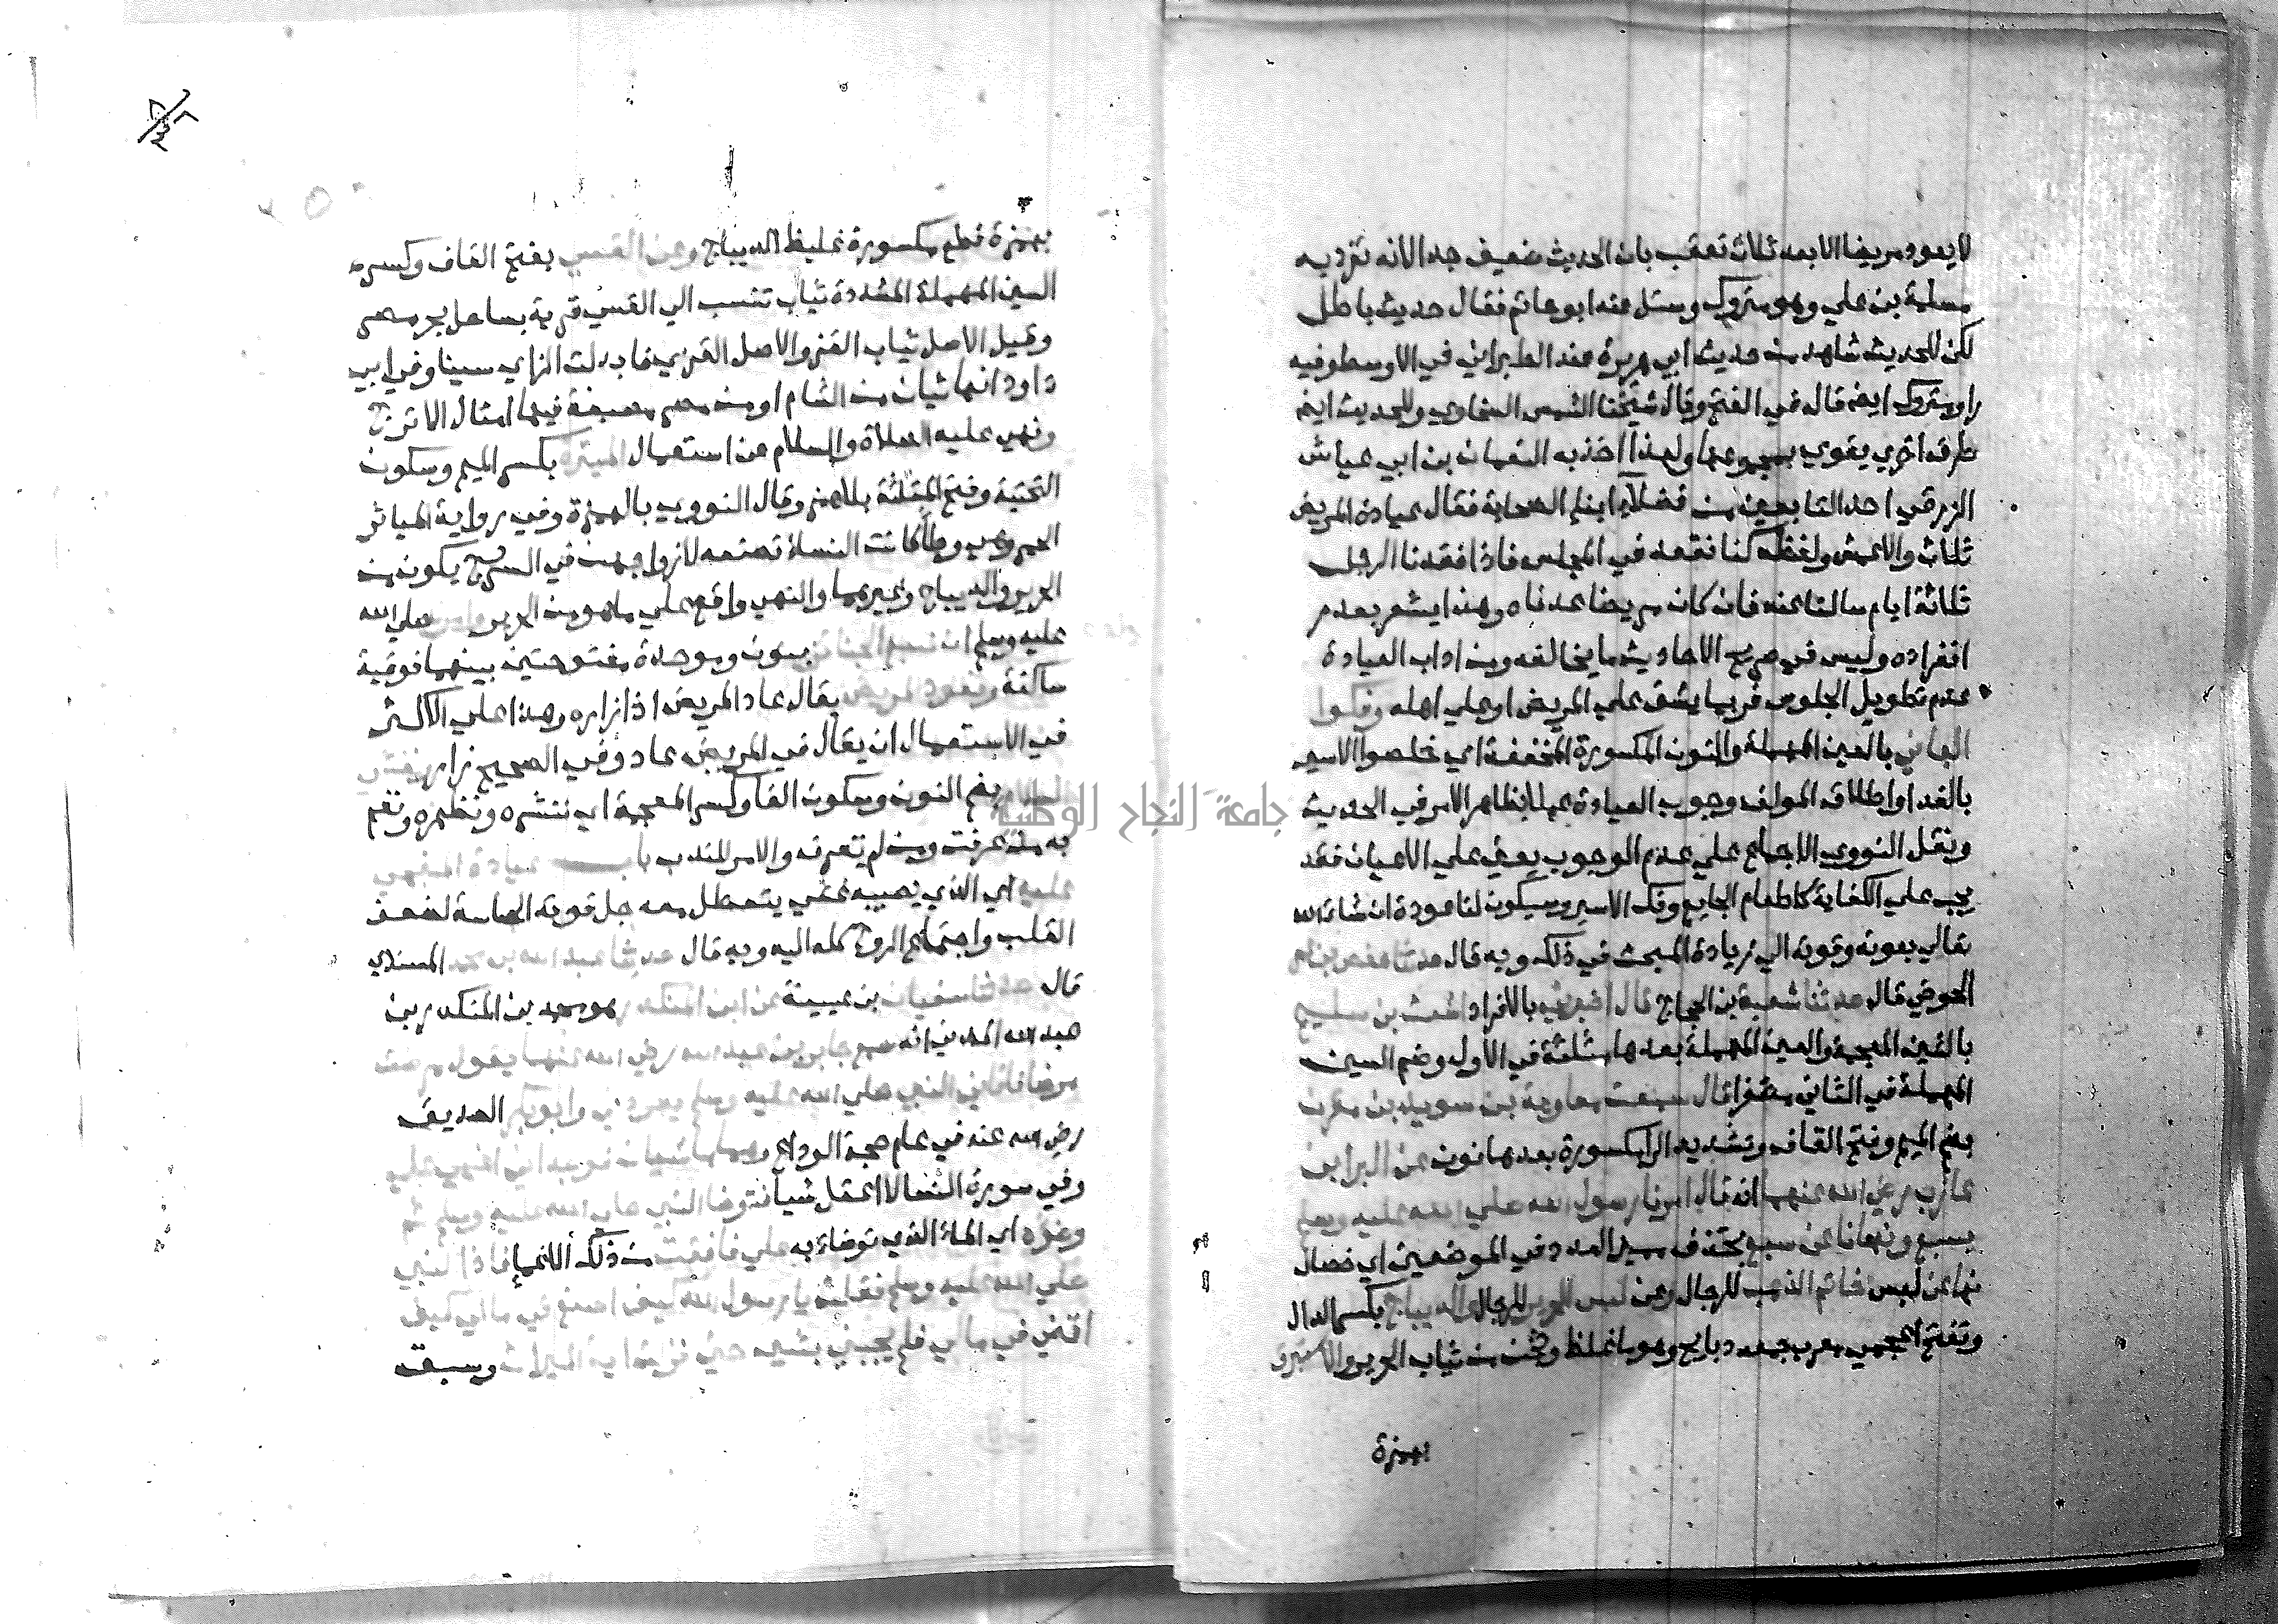 لا يعود مريضا الا بعد ثلاث تعقب بان الحديث ضعيف جدا لانه تفرد به
مسلمة بن علي وهو متروك وسئل عنه ابو حاتم فقال حديث باطل
لكن للحديث شاهد من حديث ابي هريرة عند الطبراني في الاوسط وفيه
راو متروك ايضا قال في الفتح وقال شيخنا الشمس السخاوي وللحديث ايضا
طرق اخري يقوي بمجموعها ولهذا اخذ به النعمان بن ابي عياش
الزرقي احد التابعين من فضلاء ابناء الصحابة فقال عيادة المريض
ثلاث والاعمش ولفظه كنا نقعد في المجلس فاذا فقدنا الرجل
ثلاثة ايام سالنا عنه فان كان مريضا عدناه وهذا يشعر بعدم
انفراده وليس في صريح الاحاديث ما يخالفه ومن اداب العيادة
عدم تطويل الجلوس فربما يشق علي المريض او علي اهله وفكوا
العاني بالعين المهملة والنون المكسورة المخففة اي خلصوا الاسير
بالفداواطلاق المولف وجوب العيادة عملا بظاهر الامر في الحديث
ونقل النووي الاجماع علي عدم الوجوب يعني علي الاعيان فقد
يجب علي الكفاية كاطعام الجايع وفك الاسير وسيكون لنا عودة ان شاء الله
تعالي بعونه وقوته الي زيادة المبحث في ذلك وبه قال حدثنا حفص بن عمر
الحوضي قال حدثنا شعبة بن الحجاج قال اخبرني بالافراد اشعث بن سليم
بالشين المعجمة والعين المهملة بعدها مثلثة في الاول وضم السين
المهملة في الثاني مصغرا قال سمعت معاوية بن سويد بن مقرن
بضم الميم وفتح القاف وتشديد الرا مكسورة بعدها نون عن البرا بن
عازب رضي الله عنهما انه قال امرنا رسول الله صلي الله عليه وسلم
بسبع ونهانا عن سبع بحذف مميز العدد في الموضعين اي خصال
نهانا عن لبس خاتم الذهب للرجال وعن لبس الحرير للرجال والديباج بكسر الدال
وتفتح اعجمي معرب جمعه دبابيج وهو ما غلظ وثخن من ثياب الحرير والاستبرق
بهمزة
بهمزة قطع مكسورة غليظ الديباج وعن القسي بفتح القاف وكسر
السين المهملة المشددة ثياب تنسب الي القس قرية بساحل بحر مصر
وقيل الاصل ثياب القز والاصل القزي فابدلت الزاي سينا وفي ابي
داود انها ثياب من الشام او من مصر مصبغة فيها امثال الاترج
ونهي عليه الصلاة والسلام عن استعمال الميثرة بكسر الميم وسكون
التحتية وفتح المثلثة بلا همز وقال النووي بالهمزة وفي رواية المياثر
الحمر وهي وطا كانت النساء تصنعه لازواجهن في السرج يكون من
الحرير والديباج وغيرهما والنهي واقع علي ما هو من الحرير وامرنا صلي الله
عليه وسلم ان نتبع الجنائز بنون وموحدة مفتوحتين بينهما فوقية
ساكنة ونعود المريض يقال عاد المريض اذا زاره وهذا علي الاكثر
في الاستعمال ان يقال في المريض عاد وفي الصحيح زار ونفشي
السلام بضم النون وسكون الفا وكسر المعجمة اي ننشره ونظهره ونعم
به من عرفت ومن لم تعرف والامر للندب باب عيادة المغمي
عليه اي الذي يصيبه غشي يتعطل معه جل قوته الحساسة لضعف
القلب واجتماع الروح كله اليه وبه قال حدثنا عبد الله بن محمد المسندي
قال حدثنا سفيان بن عيينة عن ابن المنكدر هو محمد بن المنكدر بن
عبد الله المدني انه سمع جابر بن عبد الله رضي الله عنهما يقول مرضت
مرضا فاتاني النبي صلي الله عليه وسلم يعودني وابو بكر الصديق
رضي الله عنه في عام حجة الوداع وهما ماشيان فوجداني اغمي علي
وفي سورة النسا لا اعقل شيا فتوضا النبي صلي الله عليه وسلم ثم
وضوءه اي الماء الذي توضاء به علي فافقت من ذلك الاغماء فاذا النبي
صلي الله عليه وسلم فقلت يا رسول الله كيف اصنع في مالي كيف
اقضي في مالي فلم يجبني بشي حتي نزلت اية الميراث وسبق
جامعة النجاح الوطنية